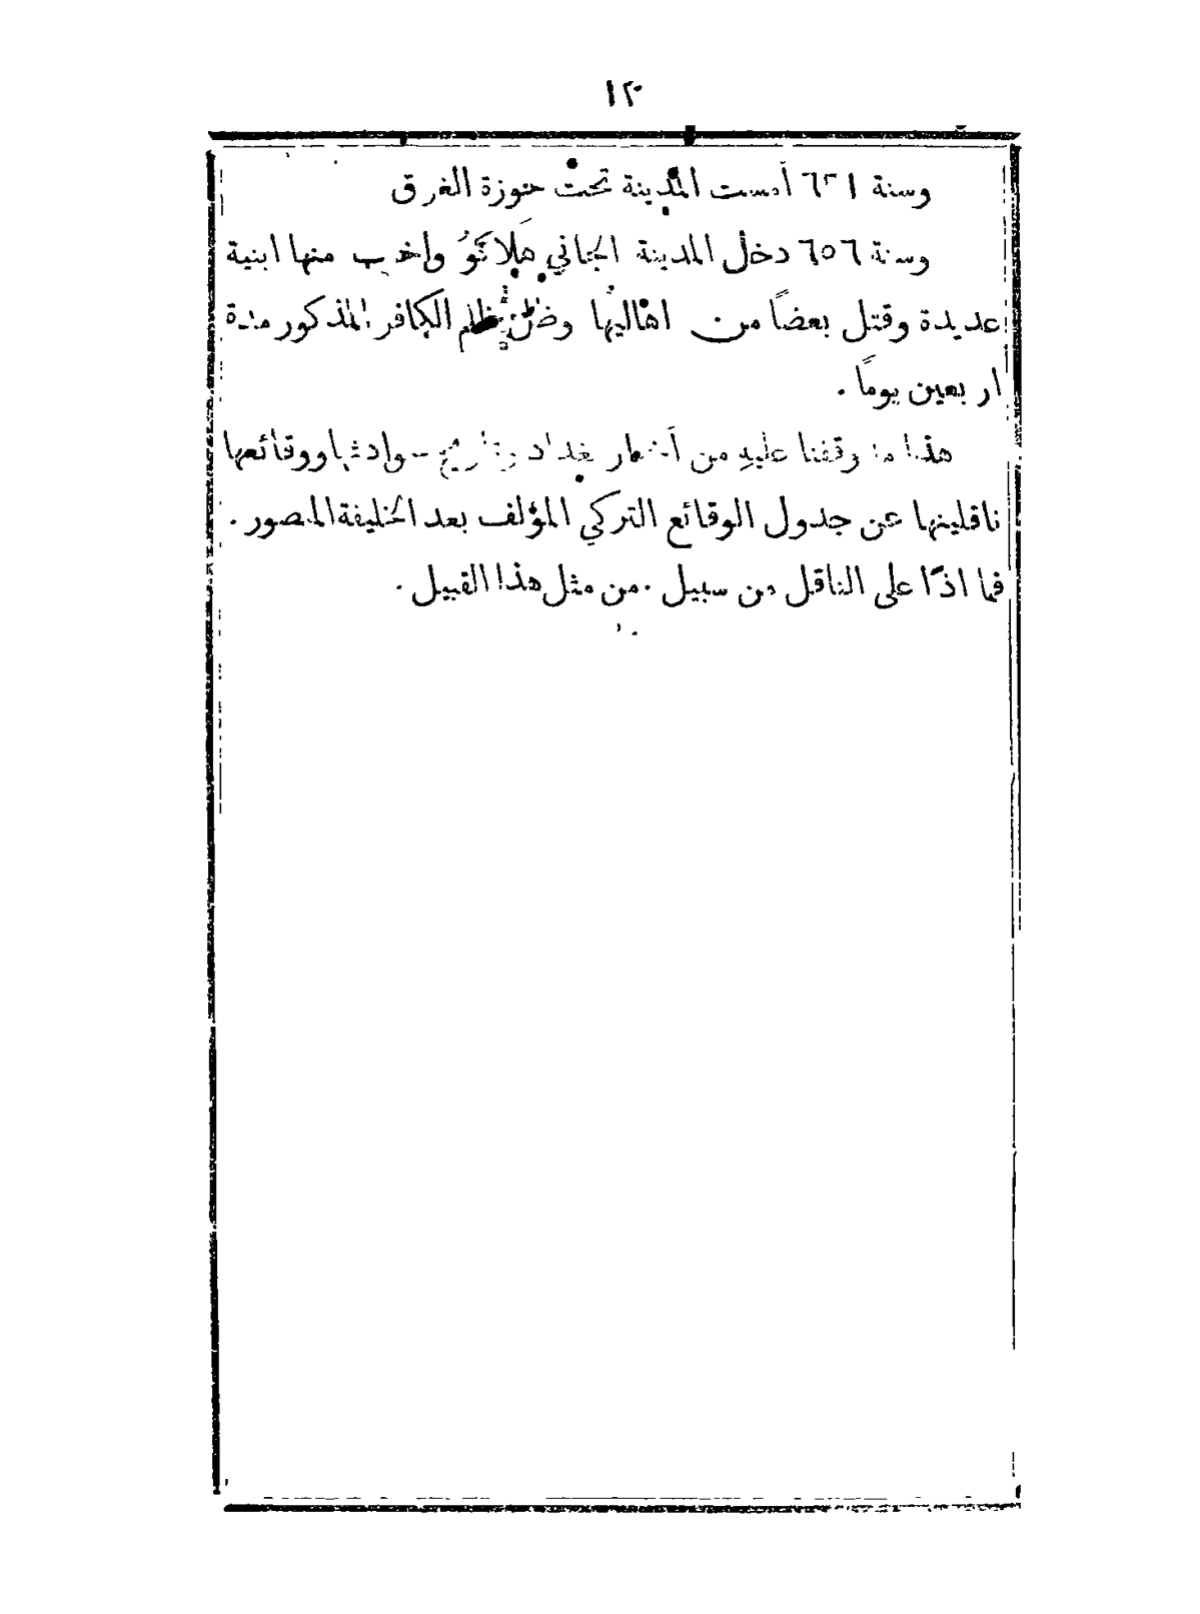 ١٢
وسنة أمست المدينة تحت حوزة الغرق
وسنة ٦٥٦ دخل المدينة هلاكو واخرب منها ابنية
عديدة وقتل بعضًا من اهاليها الكافر المذكور مدة
اربعين يومًا .
هذا ما وقفنا عليهِ من أخبار بغداد وتاريخ حوادثها ووقائعها
ناقلينها عن جدول الوقائع التركي المؤلف بعد الخليفة المنصور .
فما اذًا على الناقل من سبيل . من مثل هذا القبيل .